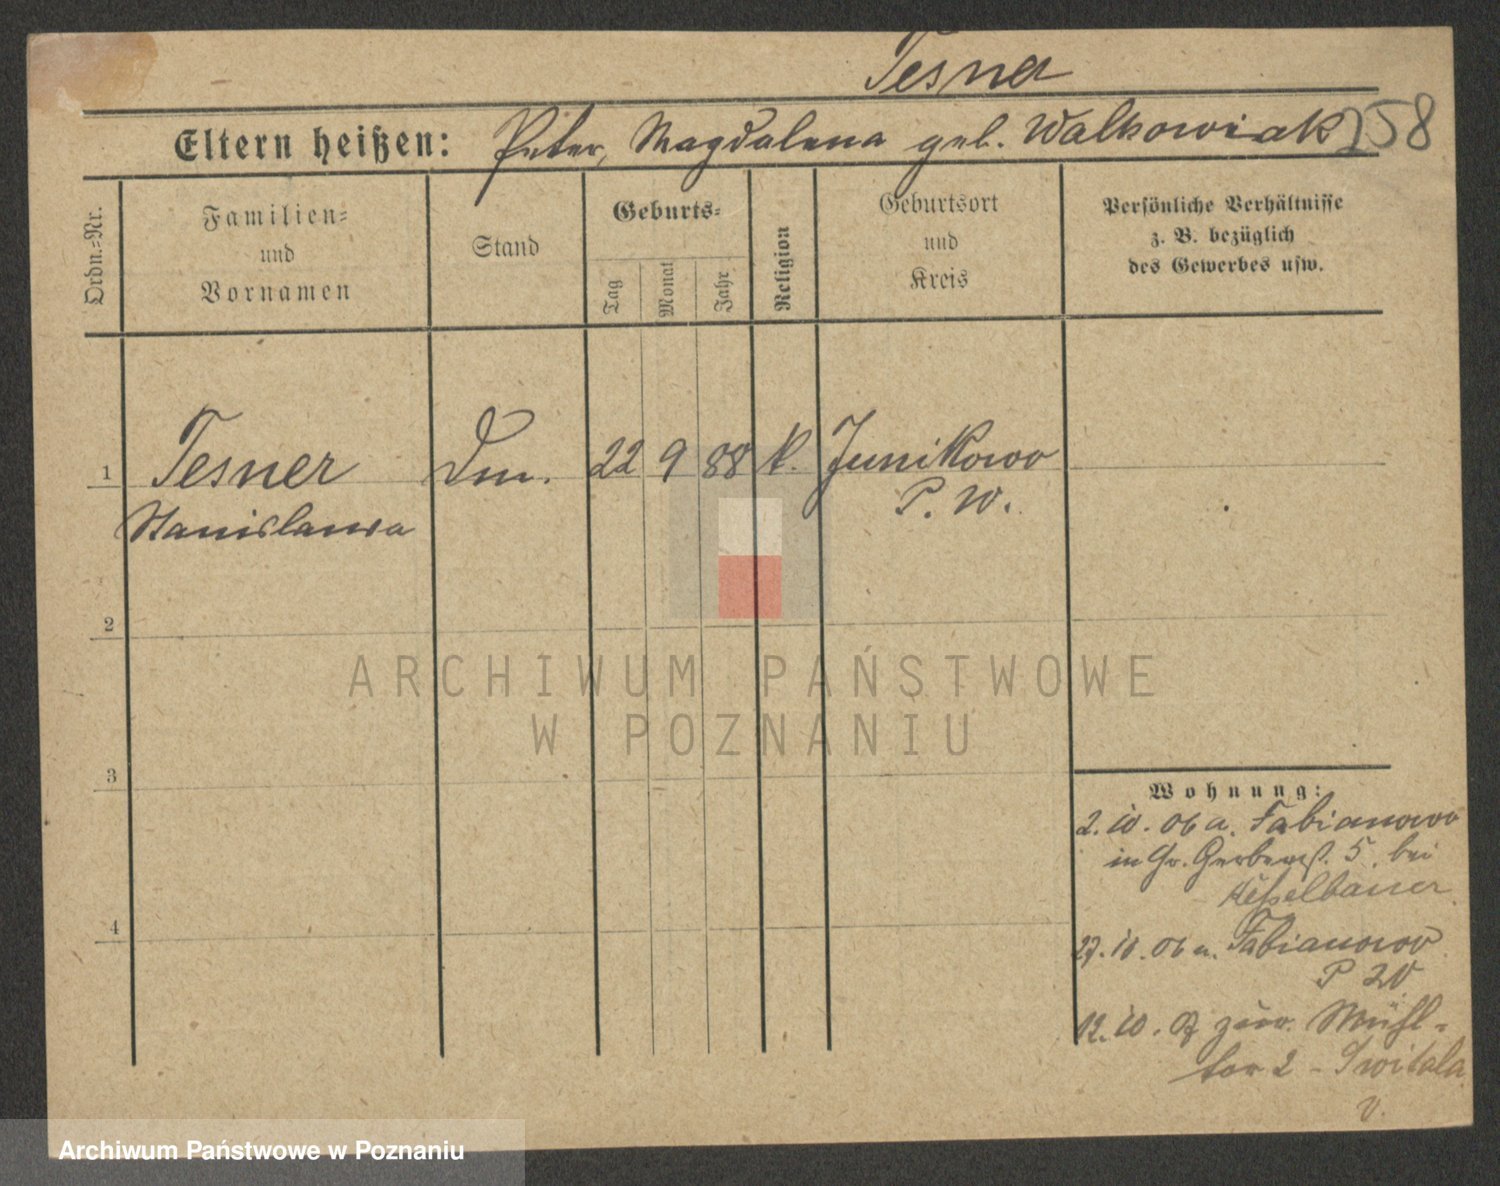 Tesner
Eltern heißen: Peter, Magdalena geb. Walkowiak 258
Ordn.=Nr.
Familien=
und
Vornamen
Stand
Geburts=
Tag
Monat
Jahr
Religion
Geburtsort
und
Kreis
Persönliche Verhältnisse
z. B. bezüglich
des Gewerbes usw.
1 Tesner Dm. 22 9 88 k. Junikowo
Stanislawa P. W.
2
3
4
Wohnung:
2. 10. 06 a. Fabianowo
in Gr. Gerberst. 5. bei
Kesselbauer
27. 10. 06 n. Fabianowo
P W
12. 10. 07 zur. Mühl-
tor 2 - Switala
v.
ARCHIWUM PAŃSTWOWE
W POZNANIU
Archiwum Państwowe w Poznaniu